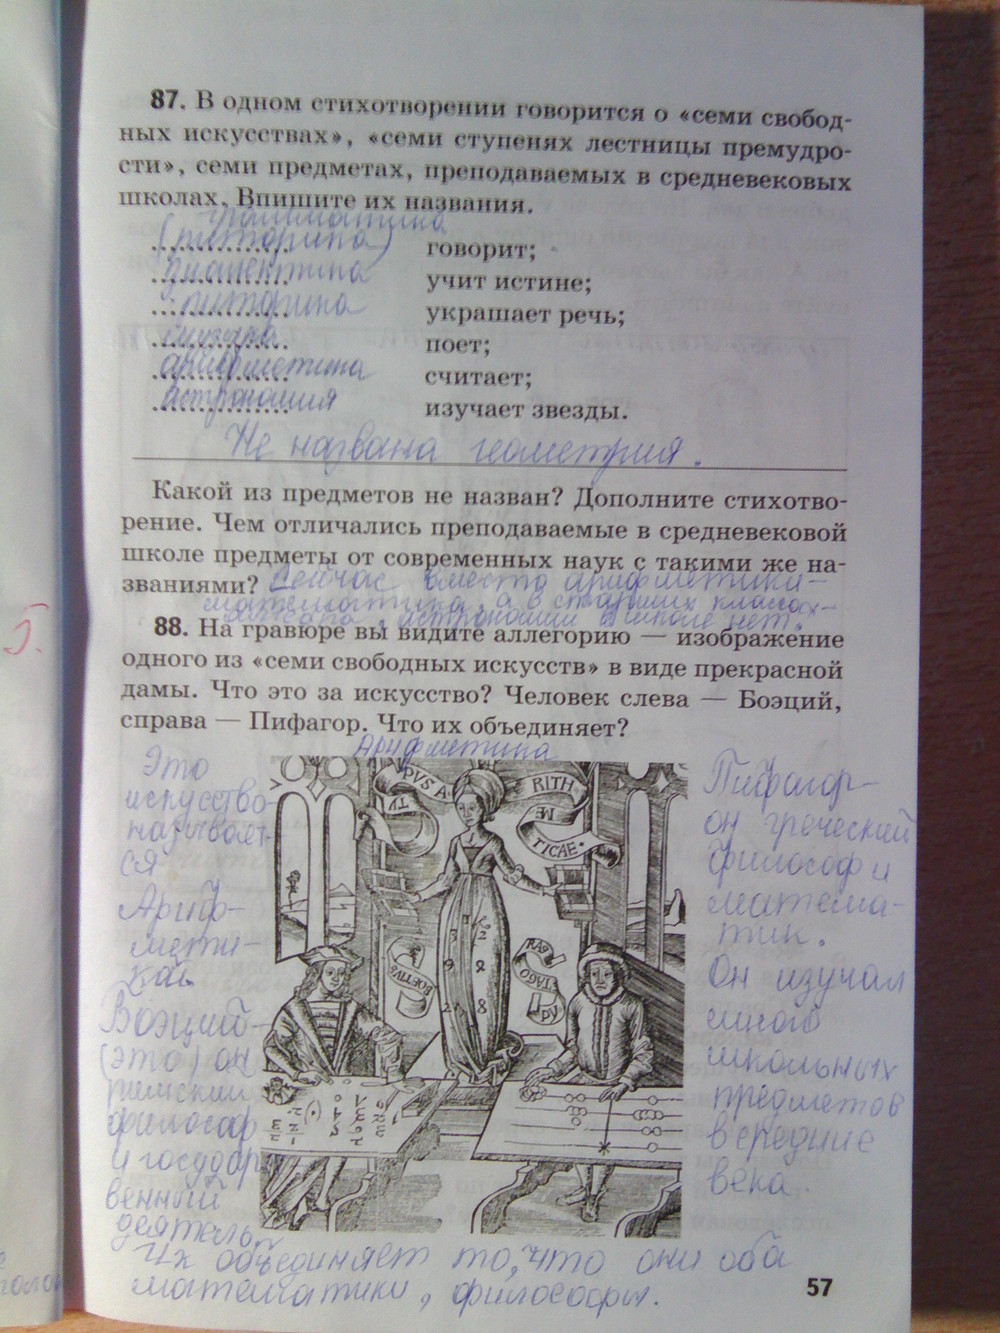 87. В одном стихотворении говорится о «семи свобод-
ных искусствах», «семи ступенях лестницы премудро-
сти», семи предметах, преподаваемых в средневековых
школах. Впишите их названия.
грамматика
(риторика) говорит;
диалектика учит истине;
риторика украшает речь;
музыка поет;
арифметика считает;
астрономия изучает звезды.
Не названа геометрия.
Какой из предметов не назван? Дополните стихотво-
рение. Чем отличались преподаваемые в средневековой
школе предметы от современных наук с такими же на-
званиями? Сейчас вместо арифметики-
математика, а в старших классах-
астрономии в школе нет.
88. На гравюре вы видите аллегорию — изображение
одного из «семи свободных искусств» в виде прекрасной
дамы. Что это за искусство? Человек слева — Боэций,
справа — Пифагор. Что их объединяет?
Арифметика
Это
искусство
называет-
ся
Ариф-
мети-
кой.
Боэций-
(это) он
римский
философ
и государ
венный
деятель.
TY PVS A RITH
ME
TICAE
BOETIUS
TAGO
Пифагор-
он греческий
философ и
матема-
тик.
Он изучал
много
школьных
предметов
в средние
века.
Их объединяет то, что они оба
математики, философы.
57
5.